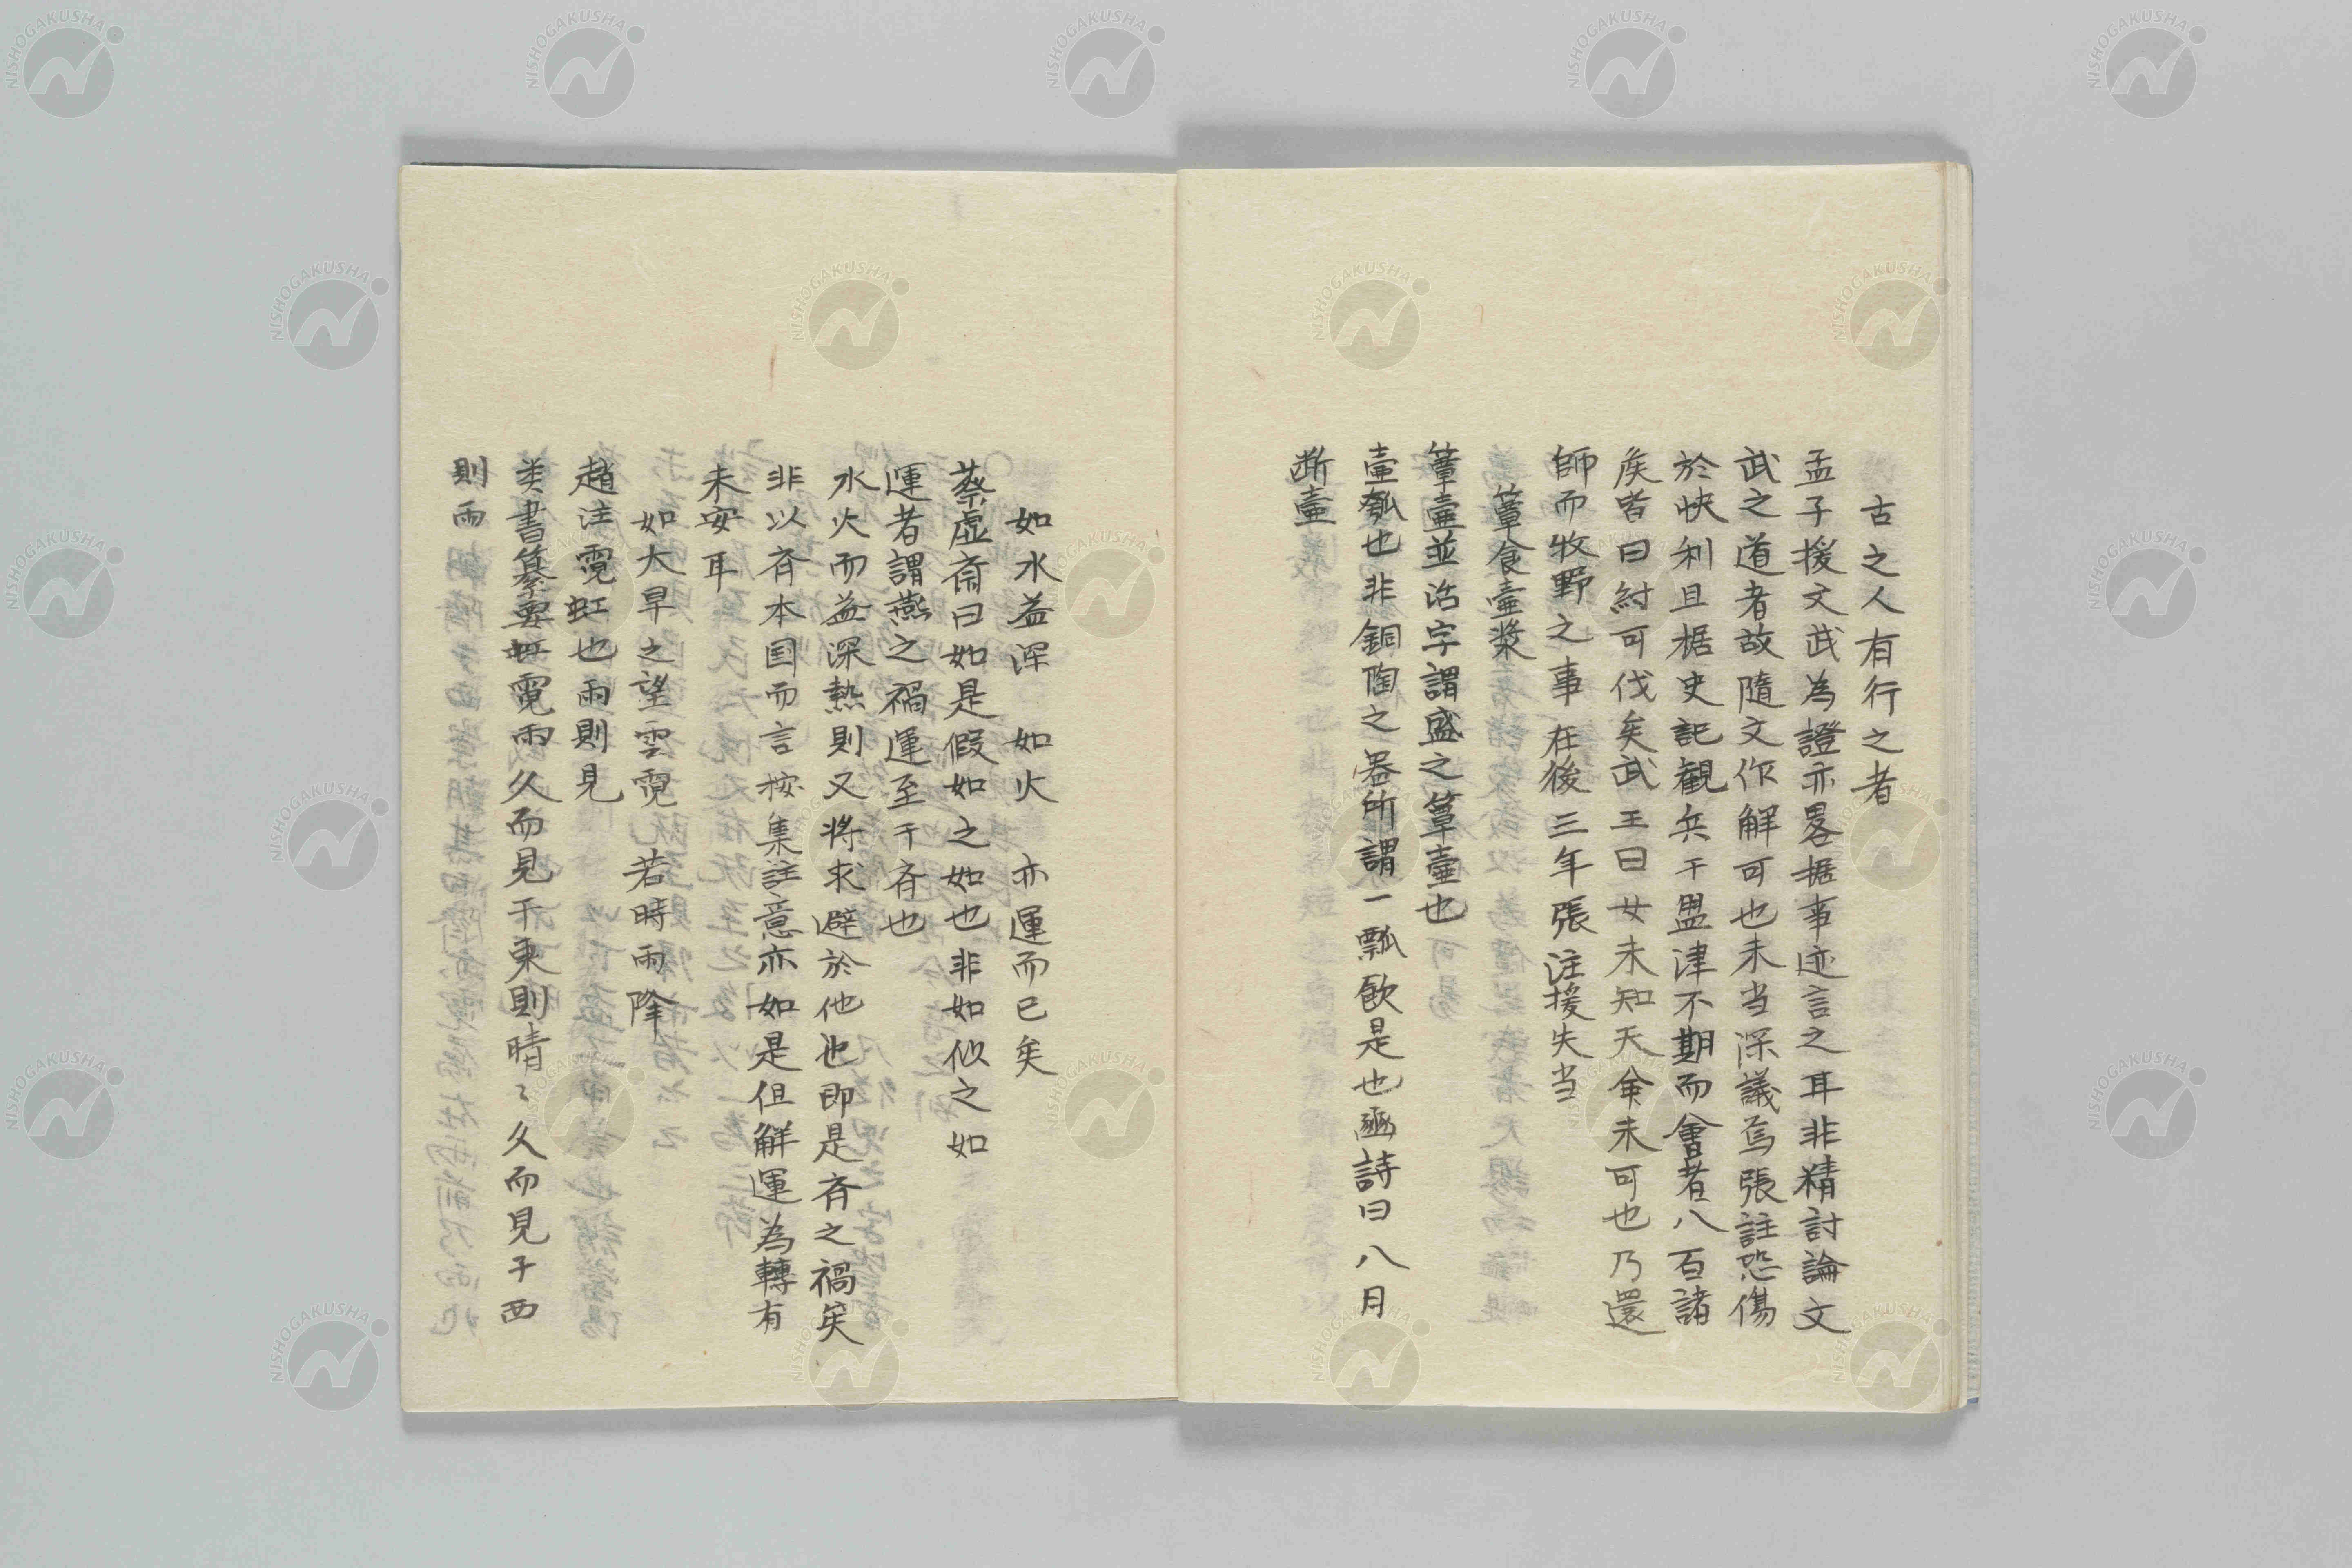 古之人有行之者
孟子援文武為證亦畧据事迹言之耳非精討論文
武之道者故隨文作解可也未当深議焉張註恐傷
於快利且据史記観兵于盟津不期而會者八百諸
矦皆曰紂可伐矣武王曰女未知天命未可也乃還
師而牧野之事在後三年張注援失当
簞食壷漿
簞壷並活字謂盛之簞壷也
壷瓠也非銅陶之器所謂一瓢飲是也豳詩曰八月
断壷
如水益深　如火　亦運而已矣
蔡虚斎曰如是假如之如也非如似之如
運者謂燕之禍運至于斉也
水火而益深熱則又将求避於他也即是斉之禍矣
非以斉本国而言按集註意亦如是但解運為轉有
未安耳
如大旱之望雲霓　若時雨降
趙注霓虹也雨則見
类書纂要虹霓雨久而見于東則晴〻久而見于西
則雨
NISHOGAKUSHA